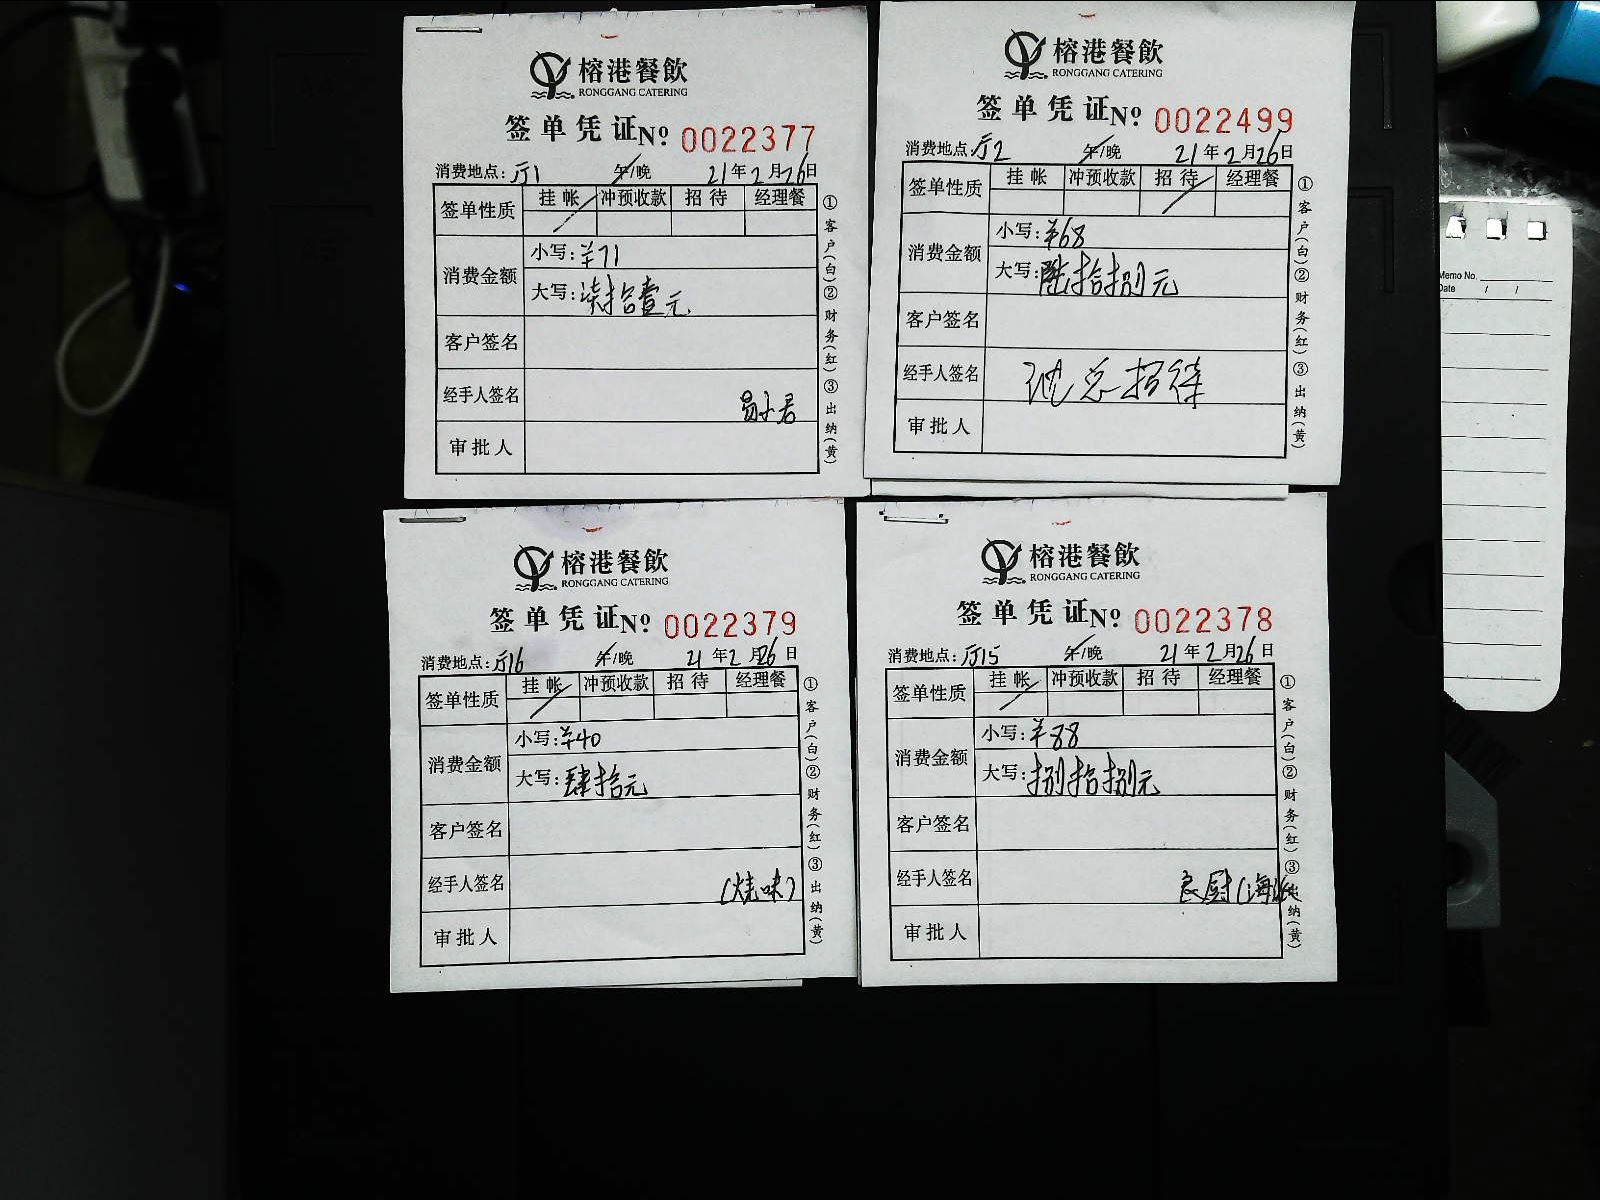 榕港餐飲
RONGGANG CATERING
签单凭证No 0022377
消费地点:厅1 午/晚 21年2月26日
签单性质 挂帐 冲预收款 招待 经理餐
消费金额
小写:¥71
大写:柒拾壹元
客户签名
经手人签名
审批人
①客户(白)②财务(红)③出纳(黄)
榕港餐飲
RONGGANG CATERING
签单凭证No 0022499
消费地点:厅2 午/晚 21年2月26日
签单性质 挂帐 冲预收款 招待 经理餐
消费金额
小写:¥68
大写:陆拾捌元
客户签名
经手人签名 沈总招待
审批人
①客户(白)②财务(红)③出纳(黄)
榕港餐飲
RONGGANG CATERING
签单凭证No 0022379
消费地点:厅16 午/晚 21年2月26日
签单性质 挂帐 冲预收款 招待 经理餐
消费金额
小写:¥40
大写:肆拾元
客户签名
经手人签名 (烧味)
审批人
①客户(白)②财务(红)③出纳(黄)
榕港餐飲
RONGGANG CATERING
签单凭证No 0022378
消费地点:厅15 午/晚 21年2月26日
签单性质 挂帐 冲预收款 招待 经理餐
消费金额
小写:¥88
大写:捌拾捌元
客户签名
经手人签名
审批人
①客户(白)②财务(红)③出纳(黄)
Memo No.
Date / /